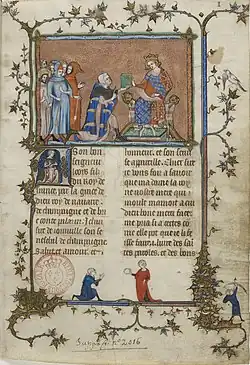 A son bon
seigneur
looys filz
du roy de
france par la grace de
dieu roy de nauarre
de champaigne et de brie
conte palazin. Jehan
sire de joinuille son se
neschal de champaigne
Salut et amour. et
honneur. et son serui
se appareille. Chier si
re je vous foiz a sauoir
que ma dame la roy
ne vostre mere qui
moult mamoit a cui
dieu bone merci face
me pria si a certes co
me elle pot que je li feis
se faire .i. liure des sai
tes paroles. et des bons
Supp. fr. n° 2016